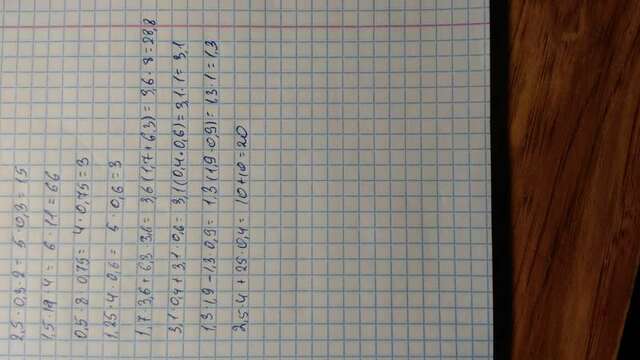 2,5 · 0,3 · 2 = 5 · 0,3 = 15
1,5 · 11 · 4 = 6 · 11 = 66
0,5 · 8 · 0,75 = 4 · 0,75 = 3
1,25 · 4 · 0,6 = 5 · 0,6 = 3
1,7 · 3,6 + 6,3 · 3,6 = 3,6 (1,7 + 6,3) = 3,6 · 8 = 28,8
3,1 · 0,4 + 3,1 · 0,6 = 3,1 (0,4 + 0,6) = 3,1 · 1 = 3,1
1,3 · 1,9 - 1,3 · 0,9 = 1,3 (1,9 - 0,9) = 1,3 · 1 = 1,3
2,5 · 4 + 25 · 0,4 = 10 + 10 = 20